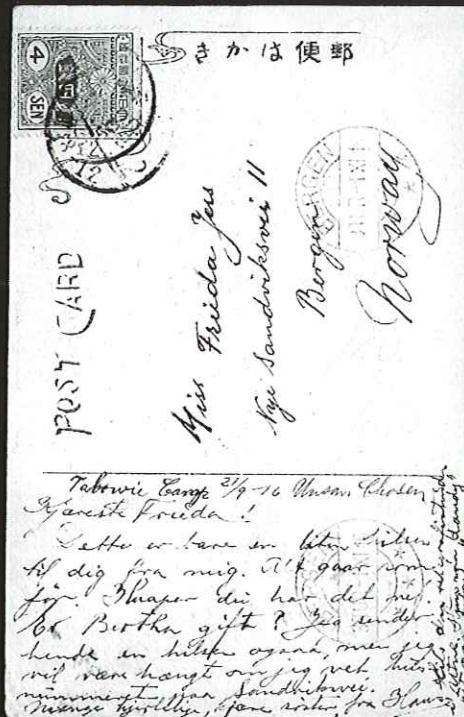 郵便はかき
4
SEN
12
POST CARD
BERGEN
Miss Frieda Jess
Nye Sandviksvei 11
Bergen
Norway
Tabowie Camp 21/9-16 Unsan Chosen
Kjæreste Frieda!
Dette er bare en liten hilsen
til dig fra mig. Alt gaar som
før. Haaper du har det
Er Bertha gift? Jeg sender
hende en hilsen ogsaa, men jeg
vil være hængt om jeg vet hus
nummeret paa Sandviksvei.
Mange hjertlige, kjære søster, fra Hawz